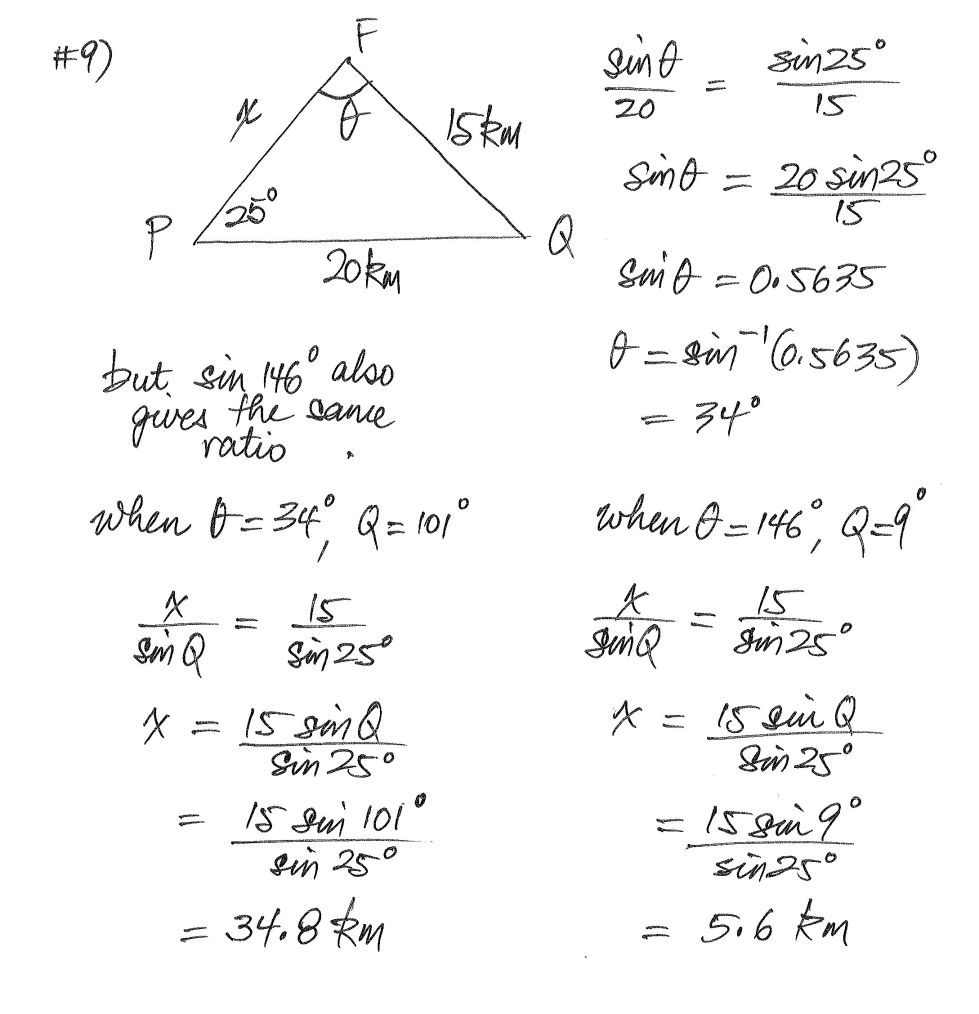 #9)
F
x
θ
15km
25°
P
Q
20km
sinθ/20 = sin25°/15
sinθ = 20 sin25°/15
sinθ = 0.5635
θ = sin⁻¹(0.5635)
= 34°
but sin 146° also
gives the same
ratio .
when θ = 34°, Q = 101°
x/sin Q = 15/sin 25°
x = 15 sin Q/sin 25°
= 15 sin 101°/sin 25°
= 34.8 km
when θ = 146°, Q = 9°
x/sin Q = 15/sin 25°
x = 15 sin Q/sin 25°
= 15 sin 9°/sin 25°
= 5.6 km